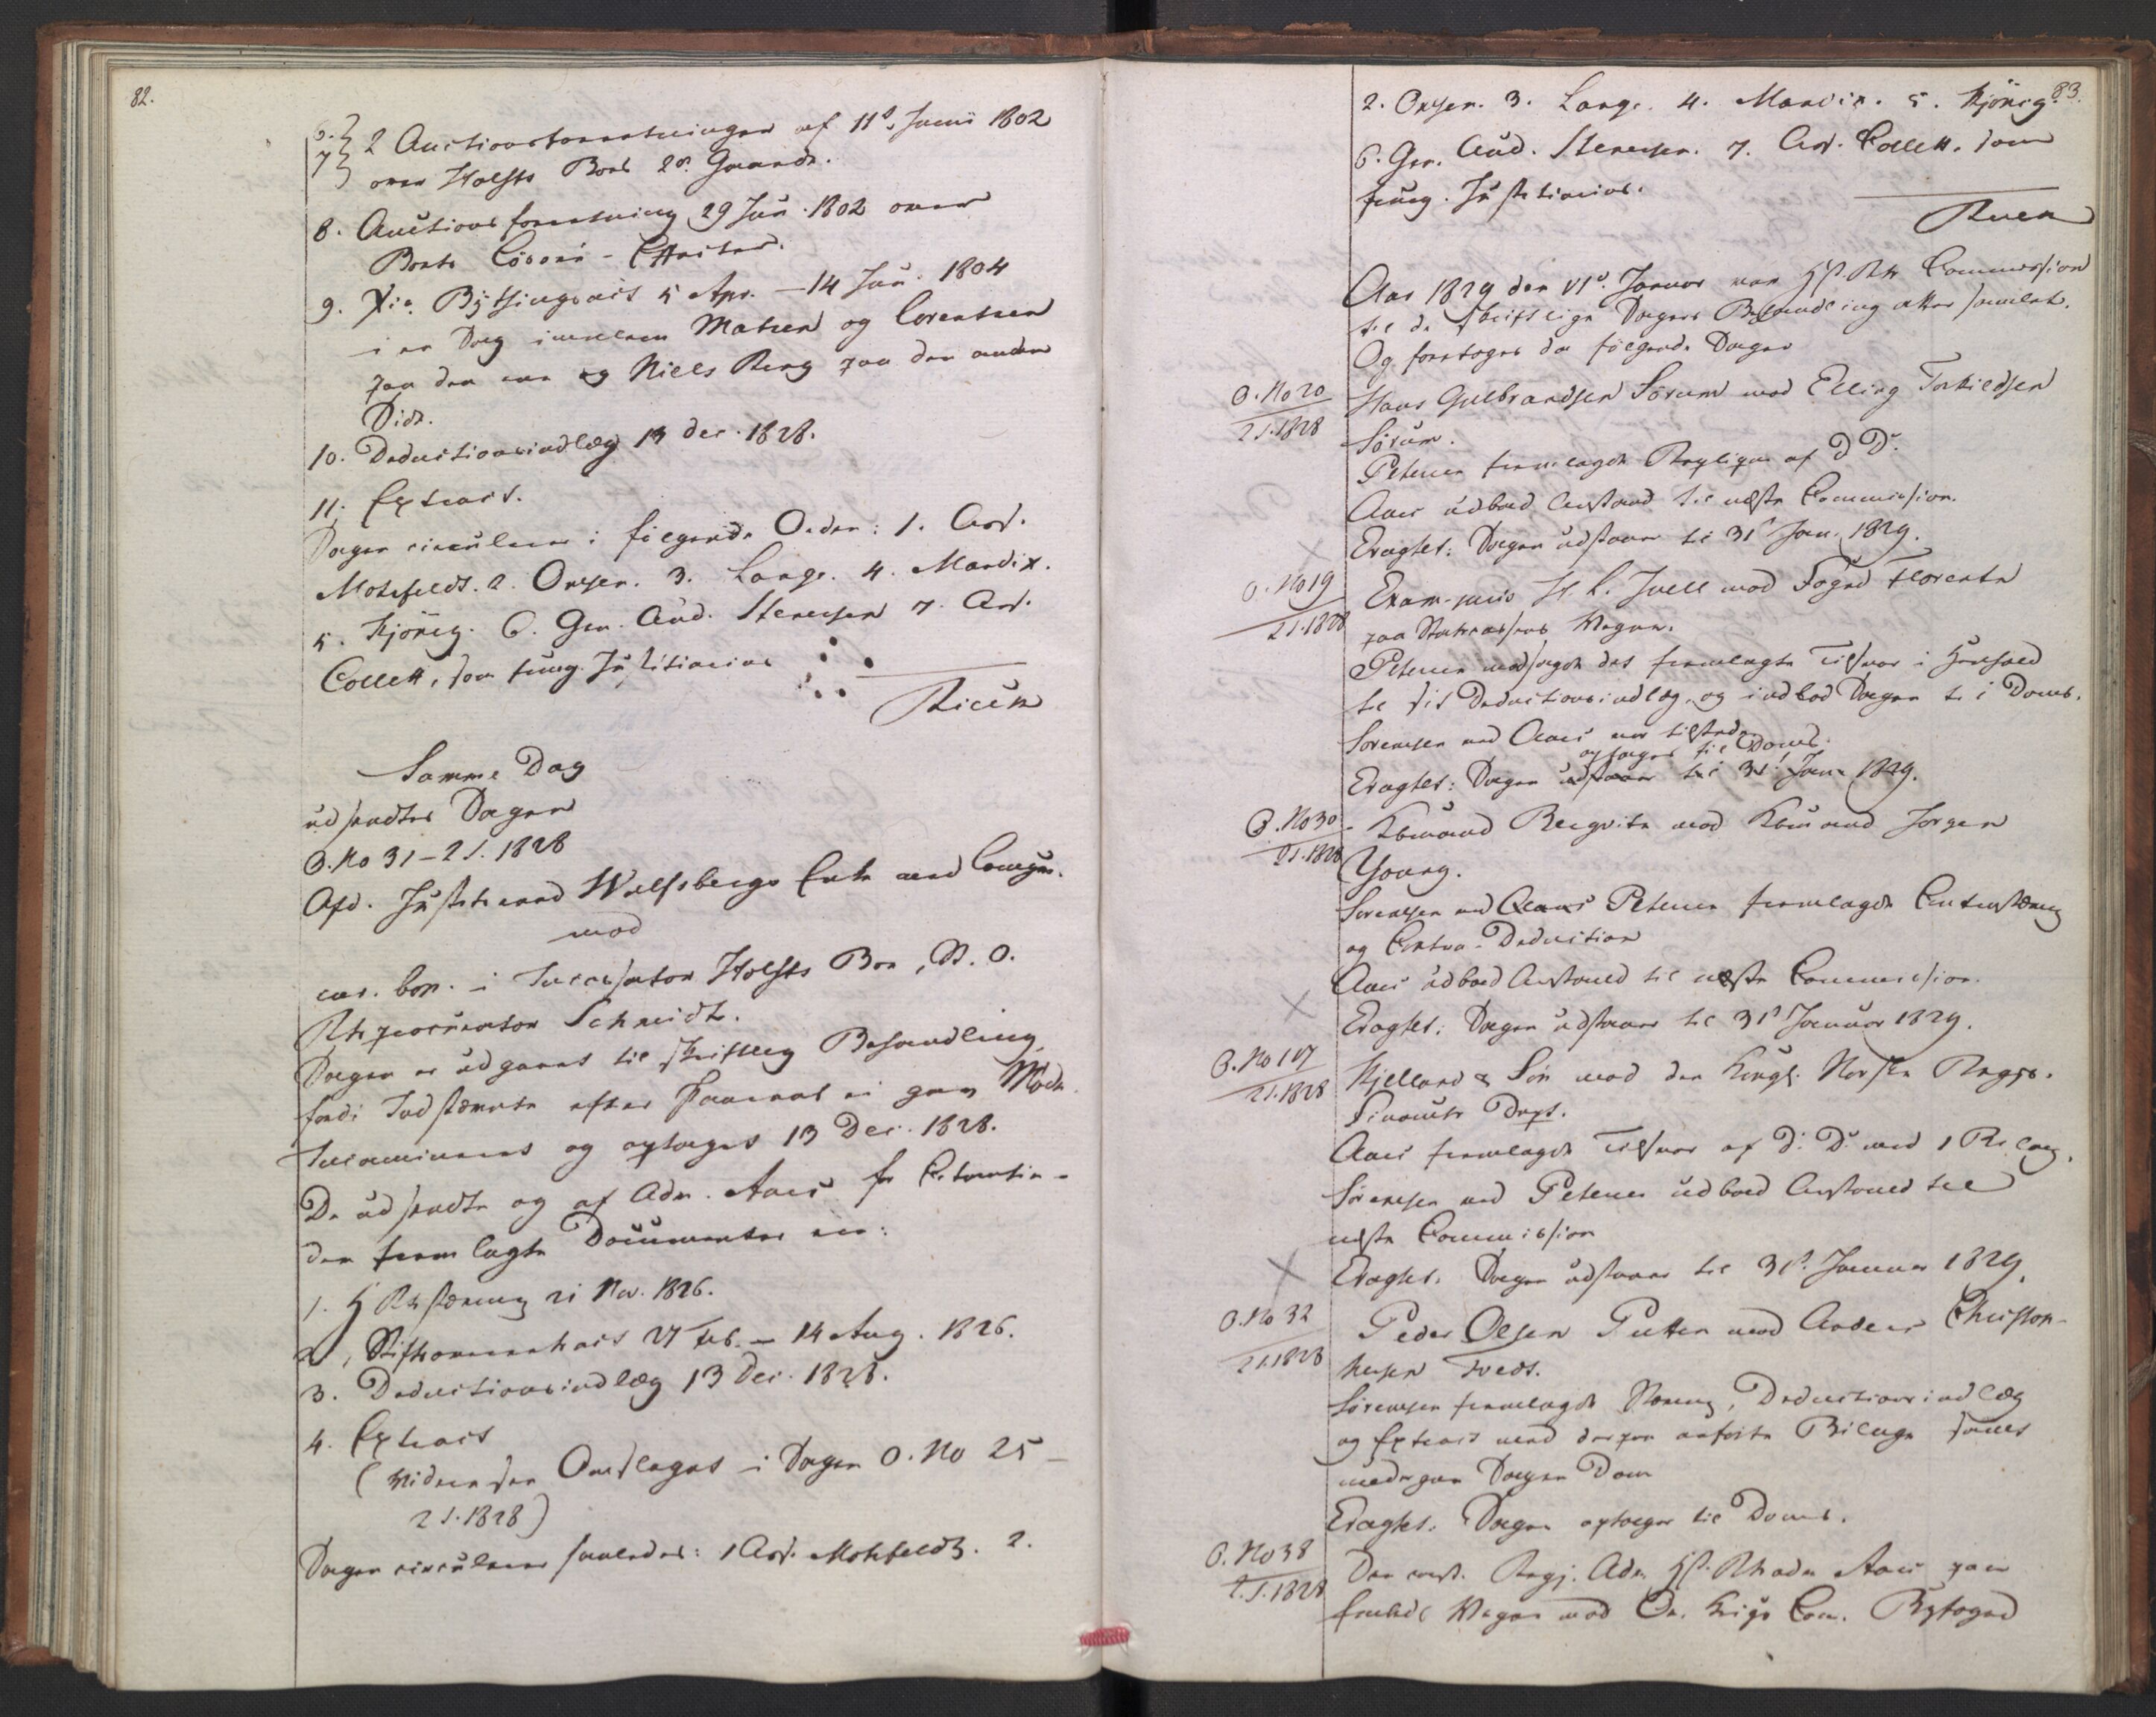 82.
6. } 2 Auctionsforretninger af 11te Junii 1802
7 } over Holsts Boes Gaarde.
8. Auctionsforretning 29 Jun. 1802 over
Boets Lösöre-Effecter.
9. Bythingsact 5 Apr. – 14 Jun. 1804
i en Sag imellem Matsen og Lorentzen
paa den ene og Niels Berg paa den anden
Side.
10. Deductionsindlæg 13 Dec. 1828.
11. Extract.
Sagen circulerer i følgende Orden: 1. Ass.
Motzfeldt. 2. Omsen. 3. Lange. 4. Mandix.
5. Kjönig. 6. Gen. Aud. Stenersen 7. Ass.
Collett, som fung. Justitiarius
Ricek
Samme Dag
udsendtes Sagen
O. No 31 – 2 S. 1828
Afd. Justitsraad Wulfsbergs Enke med Laugv.
mod
cur. bon. i Successor Holsts Boe, S. O.
Rtsprocurator Schmidt.
Sagen er udgaaet til skriftlig Behandling,
fordi Indstævnte efter Paaraab ei gav Møde
Incamineret og optaget 13 Dec. 1828.
De udstedte og af Adv. Aars for Citantin-
den fremlagte Documenter ere:
1. H Rtsstævning 21 Nov. 1826.
2, Stiftsoverretsact 27 Feb. – 14 Aug. 1826.
3. Deductionsindlæg 13 Dec. 1828.
4. Extract
(Videre see Omslaget i Sagen O. No 25 –
2 S. 1828)
Sagen circulerer saaledes: 1 Ass. Motzfeldt. 2.
83.
2. Omsen. 3. Lange. 4. Mandix. 5. Kjönig.
6. Gen. Aud. Stenersen. 7. Ass. Collett. som
fung. Justitiarius.
Aar 1829 den Januar var Hst. Rts Commission
til de skriftlige Sagers Behandling atter samlet.
Og foretoges da følgende Sager
O. No 20
2 S. 1828
Hans Gulbrandsen Sörum mod Elling Torkildsen
Sörum.
Petersen fremlagde Replique af D. D.
Aars udbad Anstand til næste Commission.
Eragtet: Sagen udstaaer til 31te Jan. 1829.
O. No 19
2 S. 1828
Exam. juris H. L. Juell mod Foged Florentz
paa Statcassens Vegne.
Petersen modsagde det fremlagte Tilsvar i Henhold
til sit Deductionsindlæg, og indlod Sagen til Doms.
Sorensen ved Aars var tilstede
optages til Doms.
Eragtet: Sagen udstaaer til 31te Jan. 1829.
O. No 30
2 S. 1828
Kbmand Bergvitz mod Kbmand Jorgen
Young.
Sorensen ved Petersen fremlagde Contrastævning
og Contra-Deduction
Aars udbad Anstand til næste Commission.
Eragtet: Sagen udstaaer til 31te Januar 1829.
O. No 107
2 S. 1828
Kjelland & Sön mod den Kongl. Norske Regjs.
Finants Dept.
Aars fremlagde Tilsvar af D. D. med 1 Bilag.
Sörensen ved Petersen udbad Anstand til
næste Commission
Eragtet. Sagen udstaaer til 31te Januar 1829.
O. No 32
2 S. 1828
Peder Olsen Putten mod Anders Christop-
hersen Tvedt.
Sörensen fremlagde Stævning, Deductionsindlæg
og Extract med derpaa anførte Bilage samt
nedergav Sagen Dom
Eragtet. Sagen optages til Doms.
O. No 38
2 S. 1828
Den const. Regj. Adv. Hst. Rtsadv. Aars paa
Embeds Vegne mod Ov. Krigs Com. Byfoged